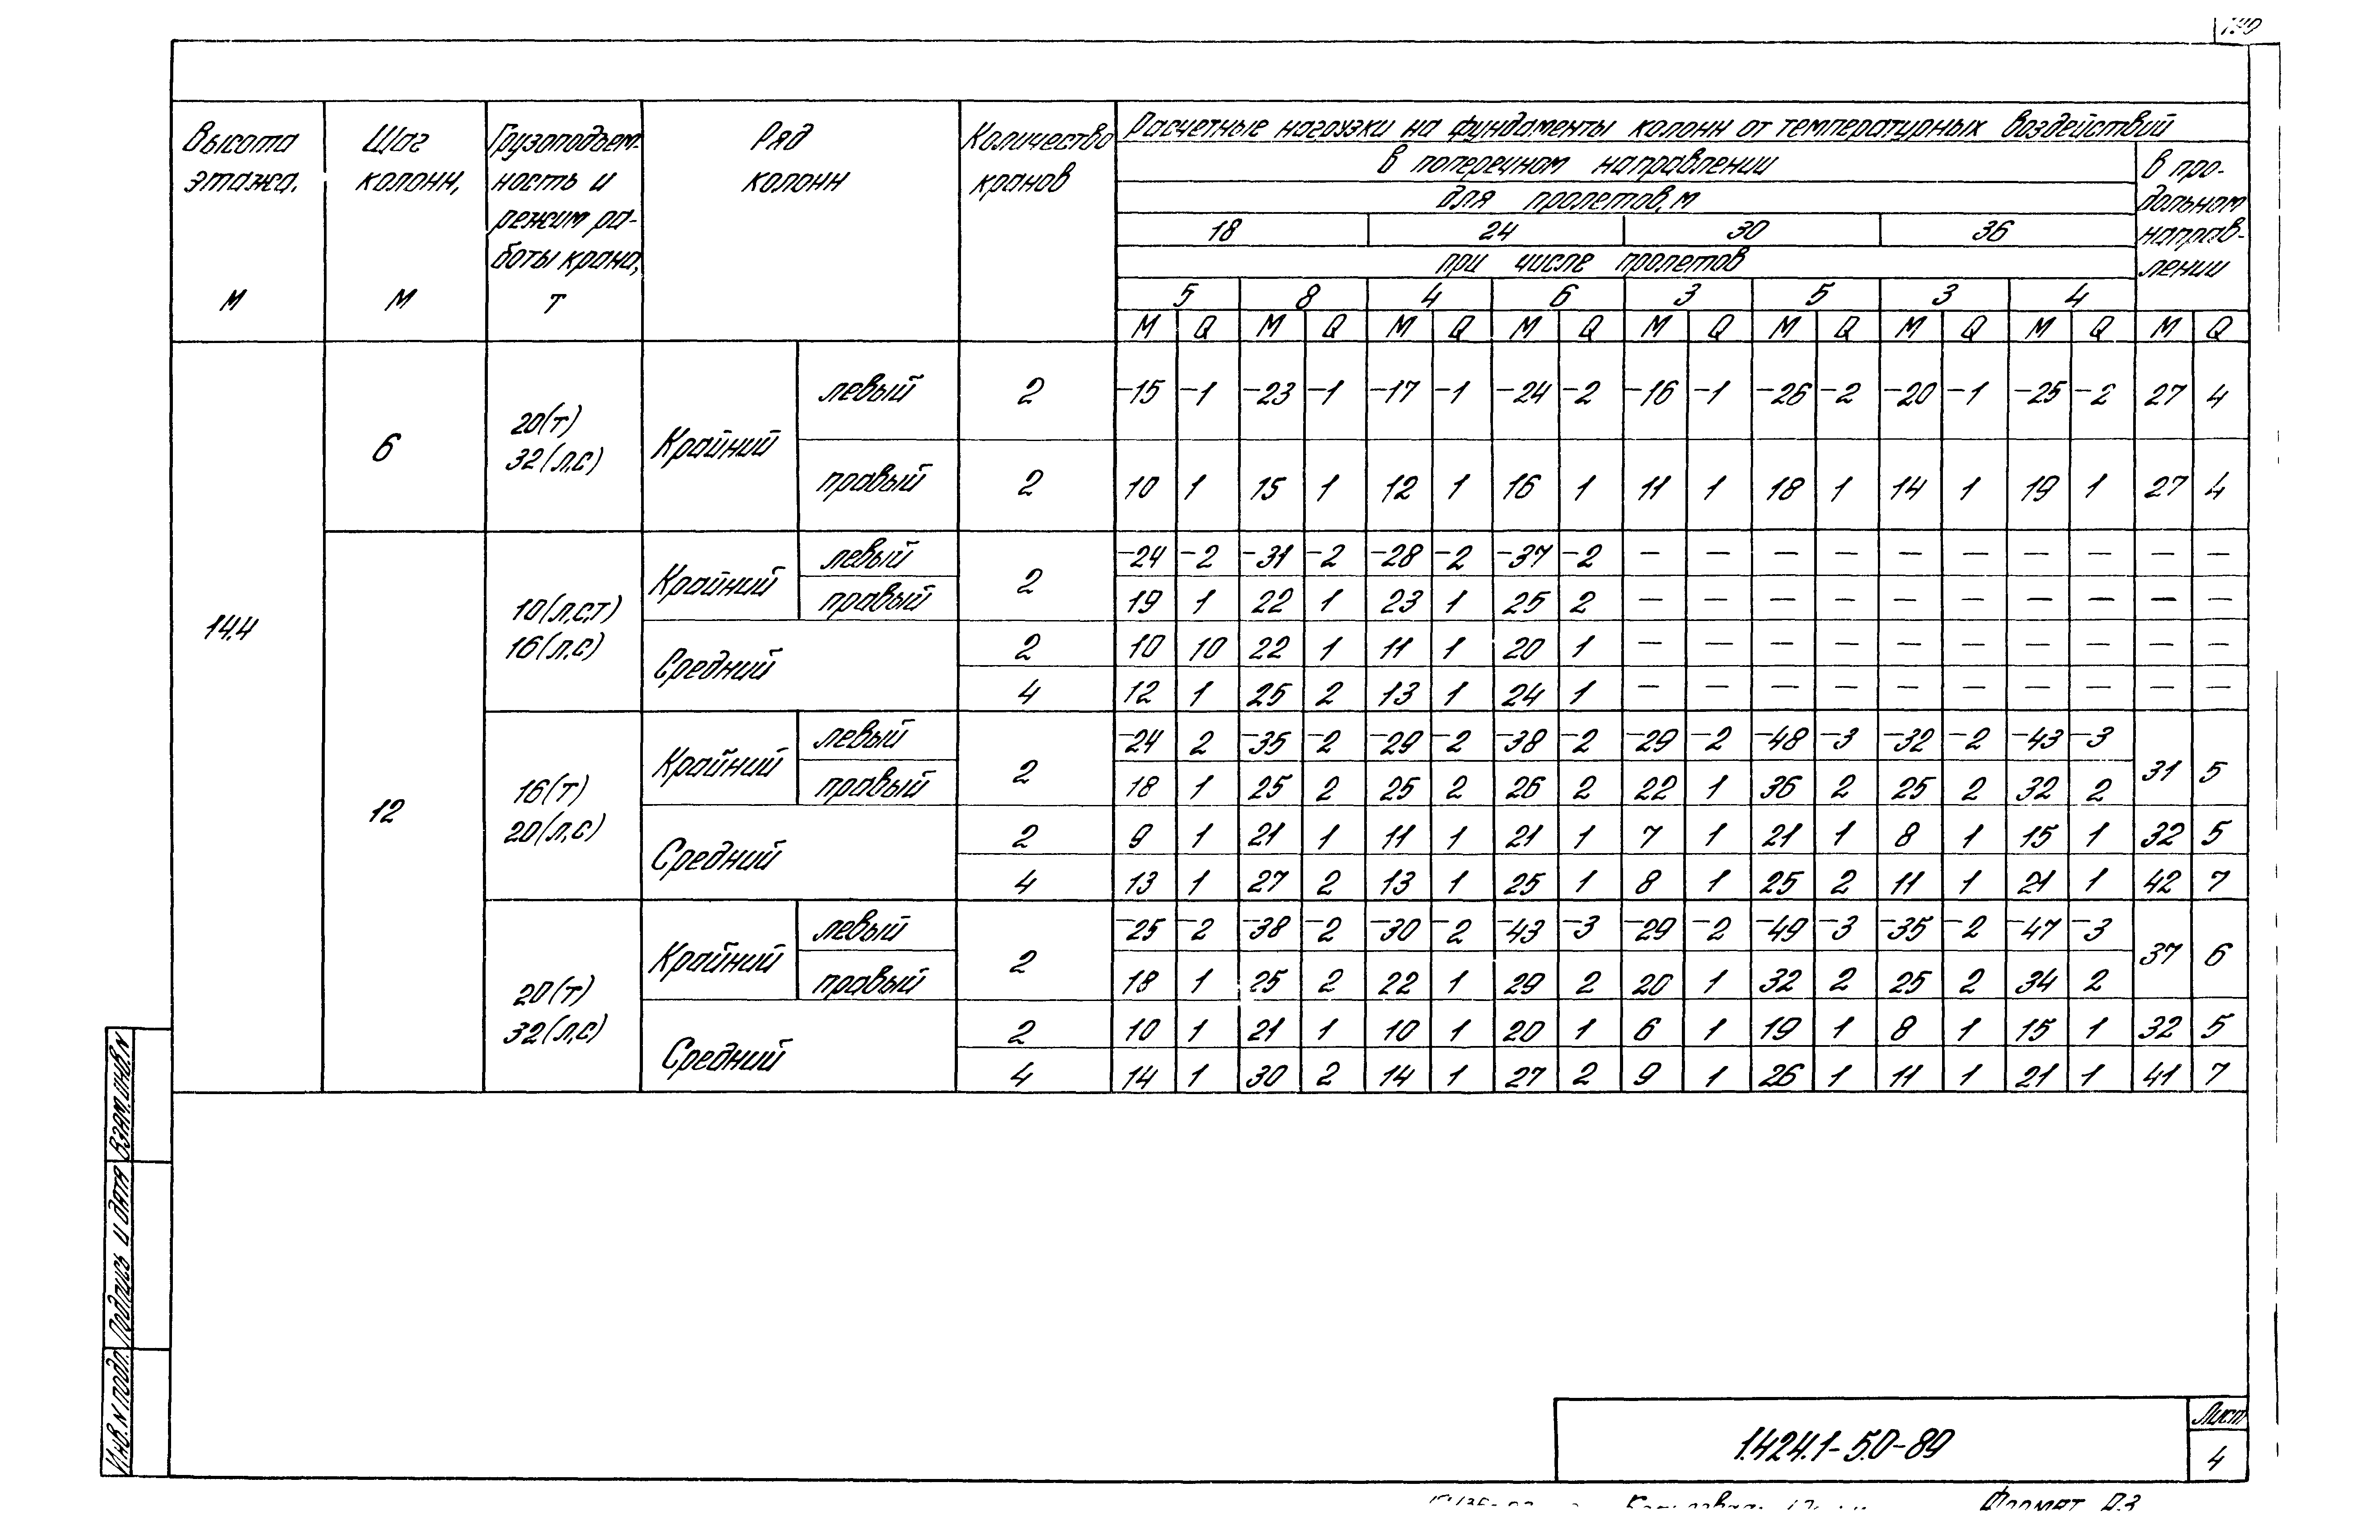 Высота этажа, М
Шаг колонн, М
Грузоподъем-
ность и
режим ра-
боты крана,
Т
Ряд колонн
Количество кранов
Расчетные нагрузки на фундаменты колонн от температурных воздействий
в поперечном направлении
в про-
дольном
направ-
лении
для пролетов, м
18 24 30 36
при числе пролетов
5 8 4 6 3 5 3 4
М Q М Q М Q М Q М Q М Q М Q М Q М Q
14,4
6
20(т)
32(л,с)
Крайний
левый 2 -15 -1 -23 -1 -17 -1 -24 -2 -16 -1 -26 -2 -20 -1 -25 -2 27 4
правый 2 10 1 15 1 12 1 16 1 11 1 18 1 14 1 19 1 27 4
12
10(л,с,т)
16(л,с)
Крайний 2
левый -24 -2 -31 -2 -28 -2 -37 -2 — — — — — — — — — —
правый 19 1 22 1 23 1 25 2 — — — — — — — — — —
Средний
2 10 10 22 1 11 1 20 1 — — — — — — — — — —
4 12 1 25 2 13 1 24 1 — — — — — — — — — —
16(т)
20(л,с)
Крайний 2 31 5
левый -24 2 -35 -2 -29 -2 -38 -2 -29 -2 -48 -3 -32 -2 -43 -3
правый 18 1 25 2 25 2 26 2 22 1 36 2 25 2 32 2
Средний
2 9 1 21 1 11 1 21 1 7 1 21 1 8 1 15 1 32 5
4 13 1 27 2 13 1 25 1 8 1 25 2 11 1 21 1 42 7
20(т)
32(л,с)
Крайний 2 37 6
левый -25 -2 -38 -2 -30 -2 -43 -3 -29 -2 -49 -3 -35 -2 -47 -3
правый 18 1 25 2 22 1 29 2 20 1 32 2 25 2 34 2
Средний
2 10 1 21 1 10 1 20 1 6 1 19 1 8 1 15 1 32 5
4 14 1 30 2 14 1 27 2 9 1 26 1 11 1 21 1 41 7
Взам.инв.N
Подпись и дата
Инв.N подл.
1.424.1-5.0-89
Лист
4
Формат А3